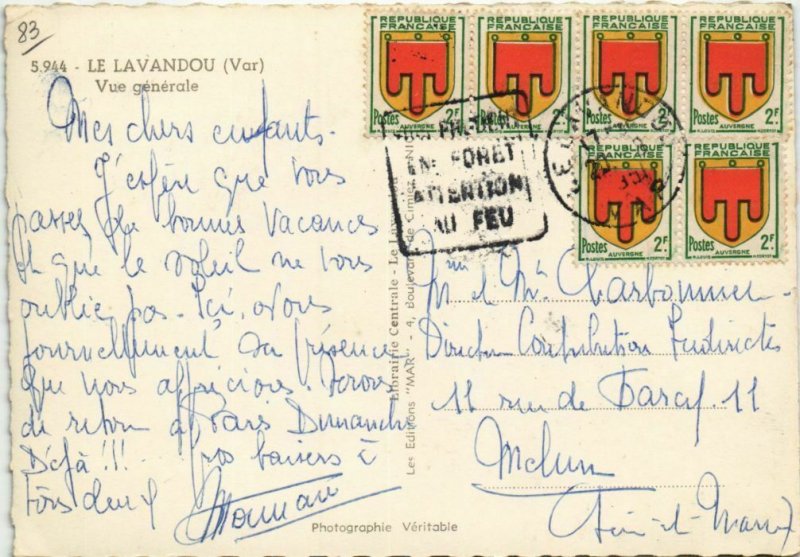 83
5.944 - LE LAVANDOU (Var)
Vue générale
Mes chers enfants.
J'espère que vous
passez de bonnes vacances
et que le soleil ne vous
oublie pas. Ici, nous
journellement sa présence
que nous apprécions. Serons
de retour à Paris Dimanche
Déjà !!! Gros baisers à
tous deux
Maman
RÉPUBLIQUE FRANÇAISE
Postes 2F
AUVERGNE
RÉPUBLIQUE FRANÇAISE
Postes 2F
RÉPUBLIQUE FRANÇAISE
Postes 2F
AUVERGNE
RÉPUBLIQUE FRANÇAISE
Postes 2F
AUVERGNE
RÉPUBLIQUE FRANÇAISE
Postes 2F
AUVERGNE
RÉPUBLIQUE FRANÇAISE
Postes 2F
AUVERGNE
EN FORET
ATTENTION
AU FEU
Librairie Centrale - Le
Les Editions "MAR" - 4, Boulevard de Cimiez
Mme et Mr Charbonnier
Directeur Contributions Indirectes
11 rue de Barcy. 11
Melun
Seine-et-Marne
Photographie Véritable